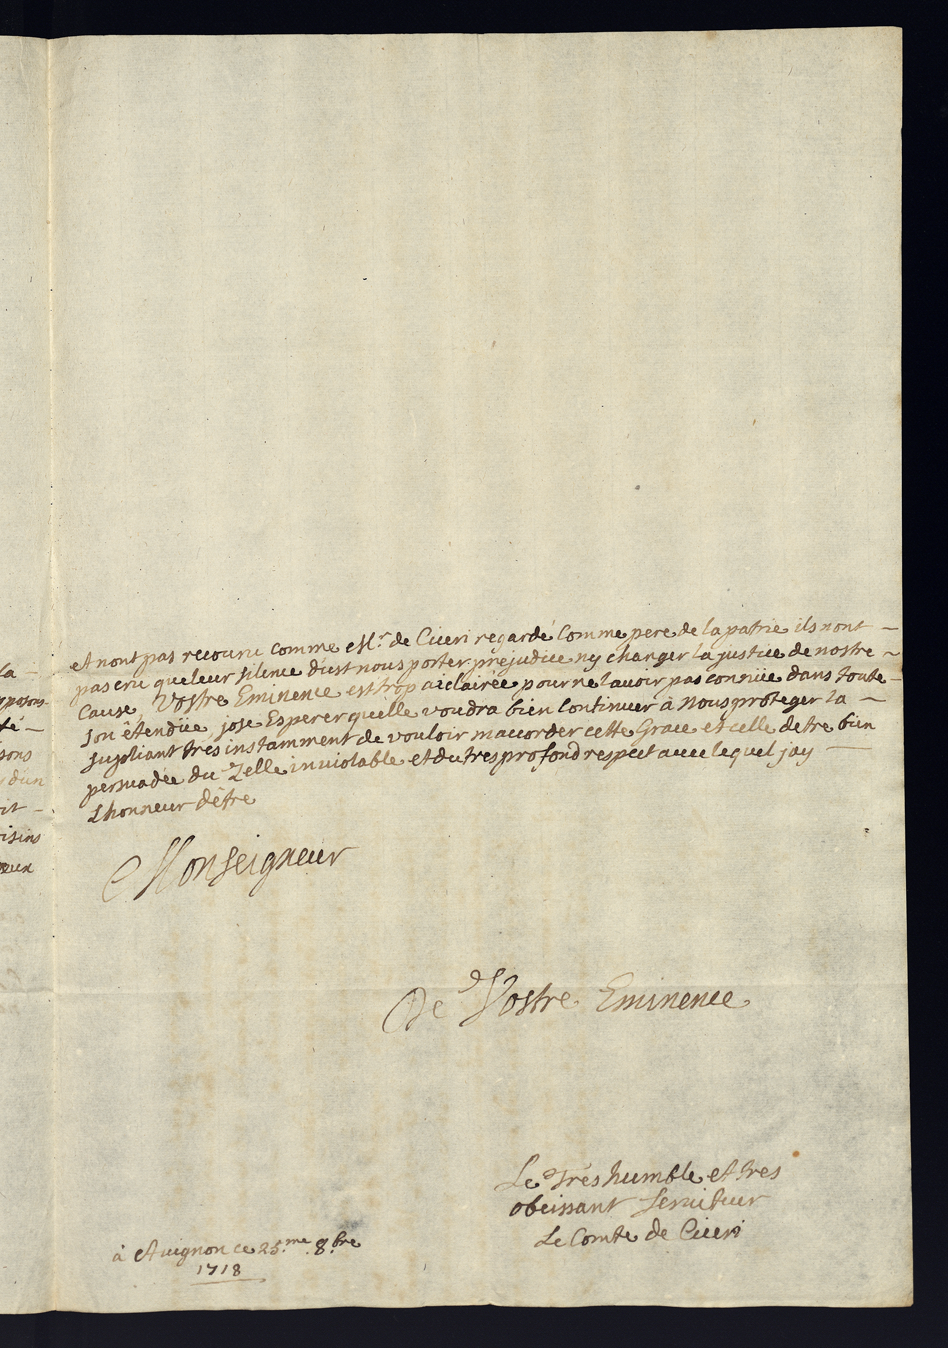 la –
té –
sons
d'un
oit –
oisins
et nont pas recouru comme Mr. de Ciceri regardé Comme pere de la patrie ils nont –
pas cru que leur silence dust nous porter prejudice ny changer la justice de nostre –
Cause Vostre Eminence est trop aiclairée pour ne lavoir pas connüe dans toute –
son êtendüe jose Esperer quelle voudra bien Continuer à nous proteger la –
supliant tres instamment de vouloir maccorder cette Grace et celle detre bien
persuadée du Zelle inviolable et du tres profond respect avec lequel jay –
Lhonneur dêtre
Monseigneur
De Vostre Eminence
Le Trés humble et tres
obeissant serviteur
Le Comte de Ciceri
à Avignon ce 25.me 8.bre
1718